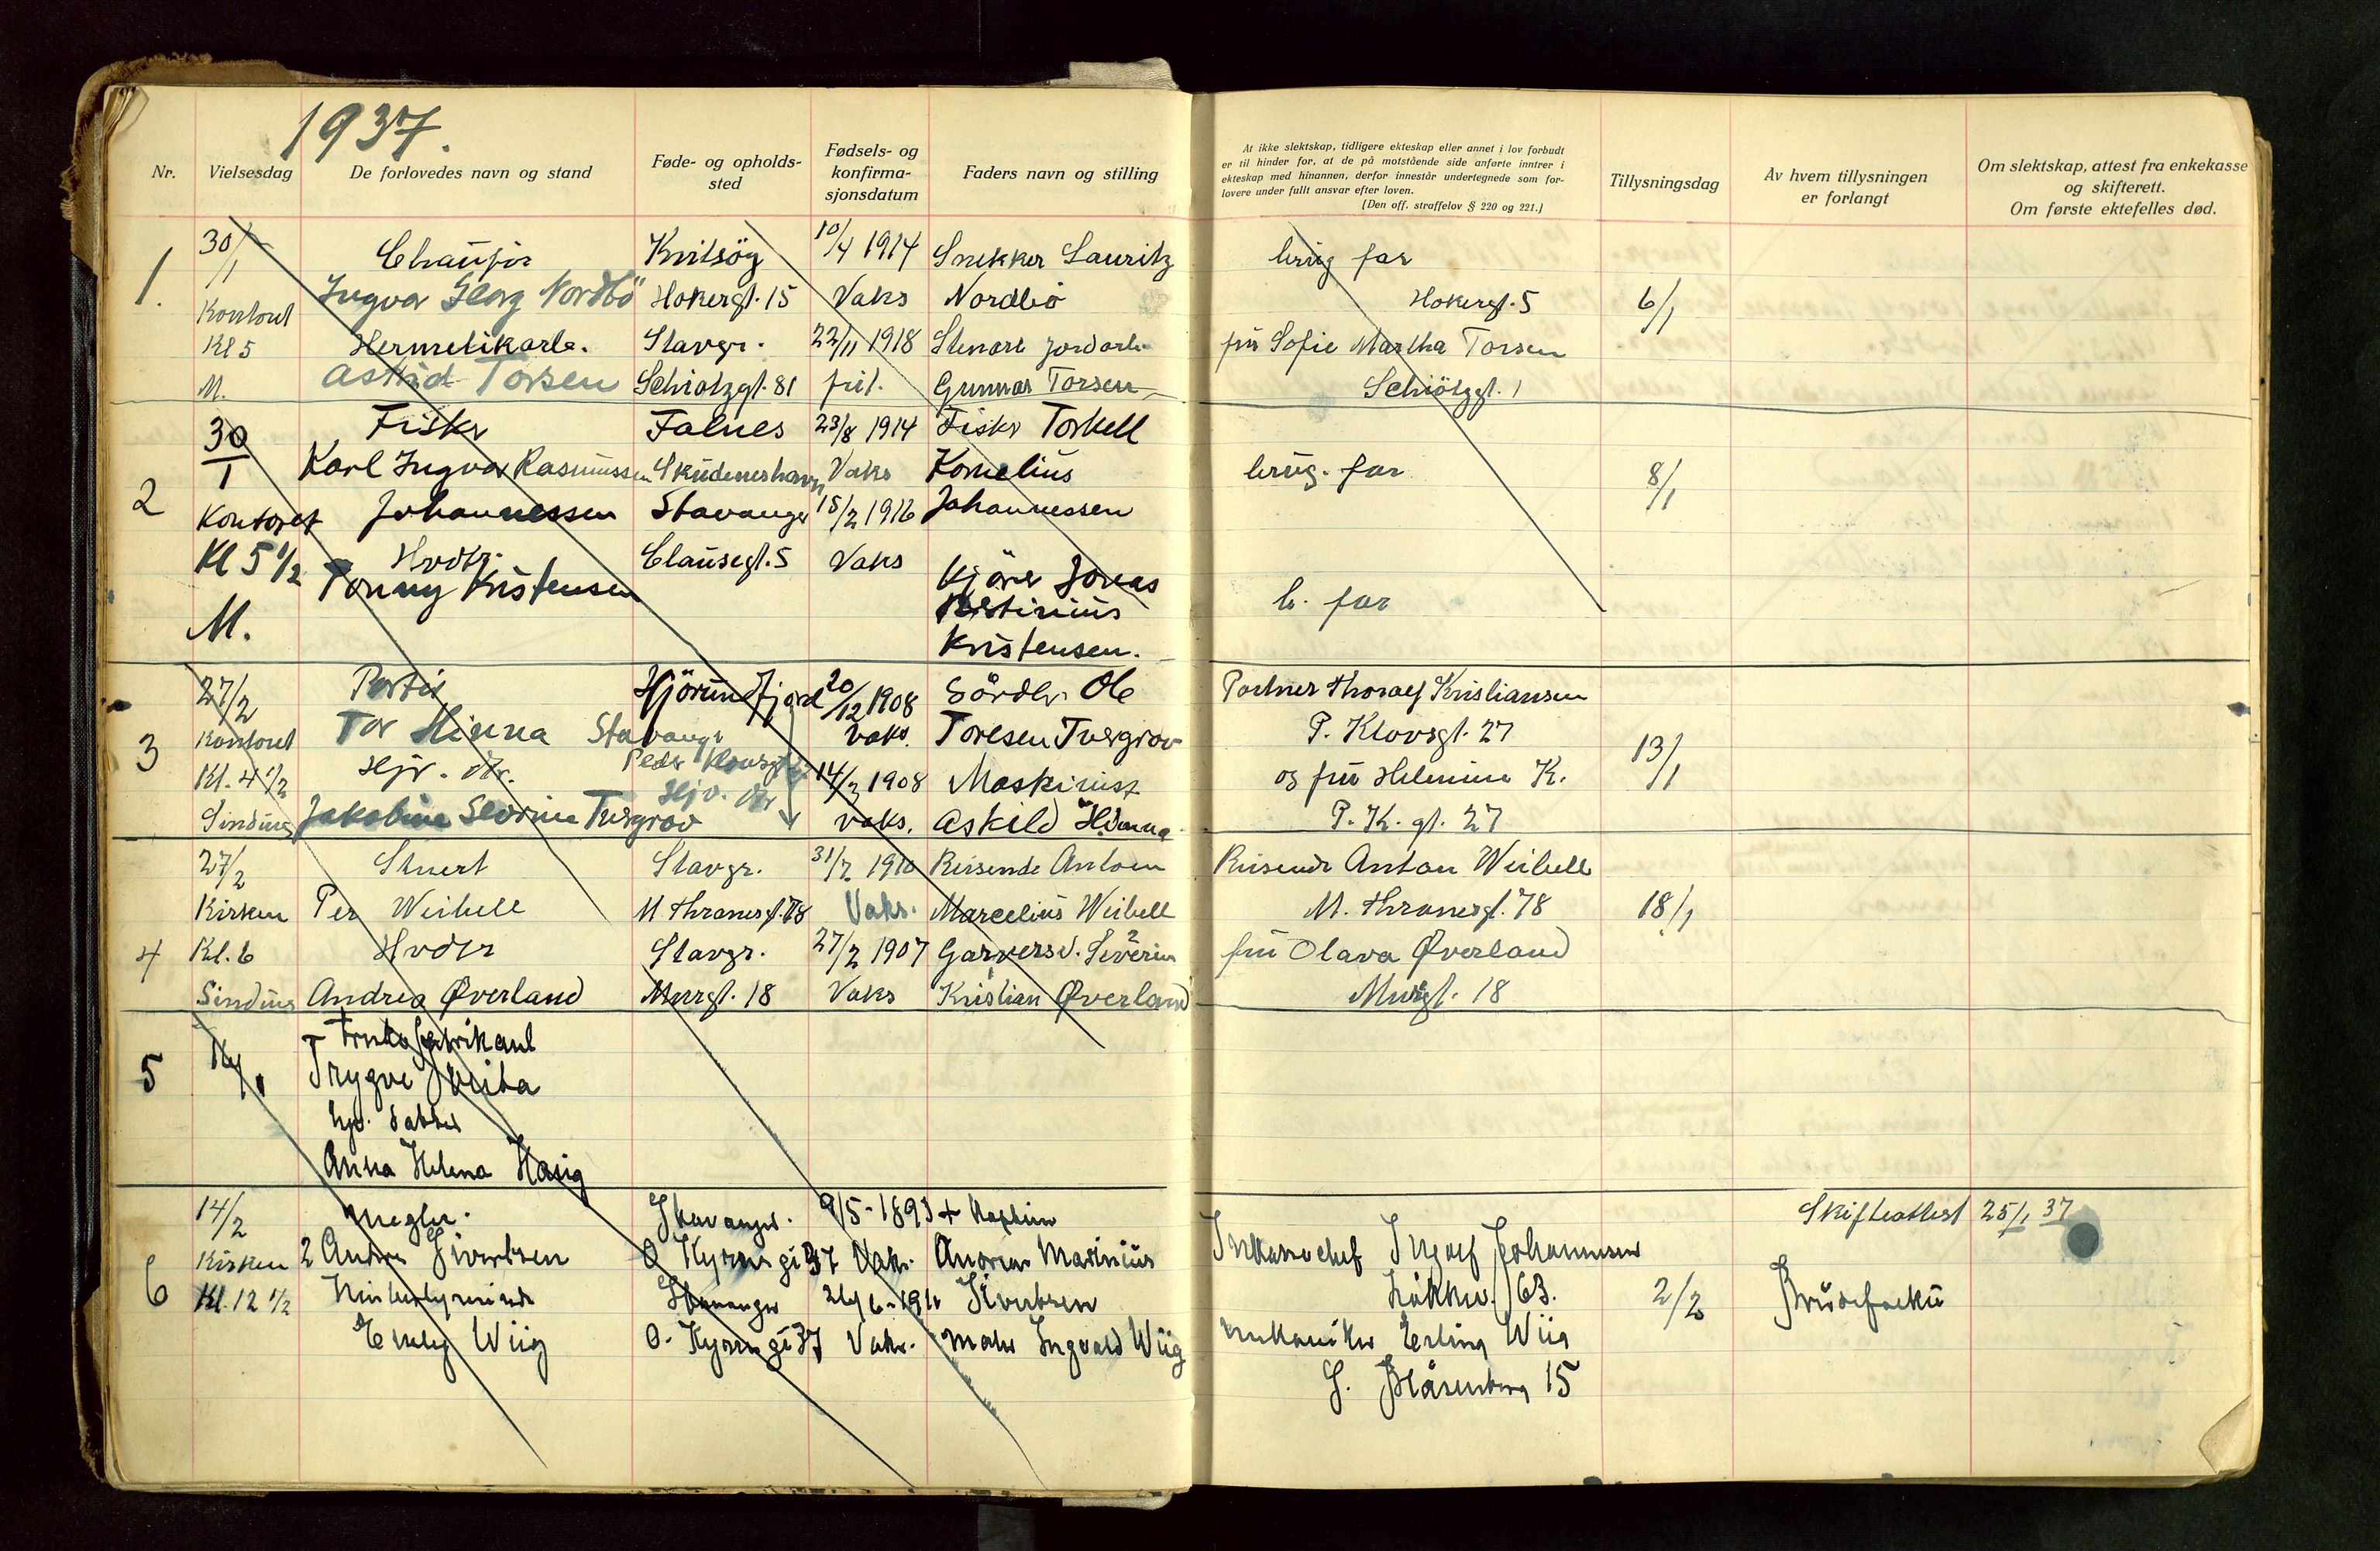 1937.
Nr.
Vielsesdag
De forlovedes navn og stand
Føde- og opholds-
sted
Fødsels- og
konfirma-
sjonsdatum
Faders navn og stilling
At ikke slektskap, tidligere ekteskap eller annet i lov forbudt
er til hinder for, at de på motstående side anførte inntrer i
ekteskap med hinannen, derfor innestår undertegnede som for-
lovere under fullt ansvar efter loven.
(Den off. straffelov § 220 og 221.)
Tillysningsdag
Av hvem tillysningen
er forlangt
Om slektskap, attest fra enkekasse
og skifterett.
Om første ektefelles død.
1.
30/1
Kontoret
Kl 5
M.
Chaufør
Ingvar Georg Nordbö
Hermetikarb.
Astrid Torsen
Kvitsöy
Hokergt. 15
Stavgr.
Schiøtzgt. 81
10/4 1914
Vaks
22/11 1918
fril.
Snekker Lauritz
Nordbö
Stenarb jordarb.
Gunnar Torsen
brug far
Hokergt. 5
fru Sofie Martha Torsen
Schiötzgt. 1
6/1
2
30/1
Kontoret
Kl 5 1/2
M.
Fisker
Karl Ingvar Rasmussen
Johannessen
Hvdtr.
Tonny Kristensen
Falnes
Skudeneshavn
Stavanger
Clausegt. 5
23/8 1914
Vaks
15/2 1916
Vaks
Fisker Torkell
Kornelius
Johannessen
Kjörer Jonas
Kristensen.
brug. far
b. far
8/1
3
27/2
Kontoret
Kl. 4 1/2
Sinding
Portør
Tor Hinna
Hjv. dtr.
Jakobine Severine Tvergrov
Hjörundfjord
Stavanger
Peder Klowsgt
Hjv. dtr
20/12 1908
Vaks.
14/3 1908
Vaks.
Gårdbr Ole
Toresen Tvergrov
Maskinist
Askild Hinna
Portner Thoralf Kristiansen
P. Klovsgt. 27
og fru Helmine K.
P. K. gt. 27
13/1
4
27/2
Kirken
Kl. 6
Sinding
Stuert
Per Weibell
Hvdtr
Andrea Øverland
Stavgr.
M. Thranesgt. 78
Stavgr.
Murgt. 18
31/7 1910
Vaks.
27/2 1907
Vaks
Reisende Antoen
Marcelius Weibell
Garversv. Severin
Kristian Øverland
Reisende Anton Weibell
M. Thranesgt. 78
fru Olava Øverland
Murgt. 18
18/1
5
Trygve
Anna Helena Hasig
6
14/2
Kirken
Kl. 12 1/2
Megler.
2 Andreas Sivertsen
Emly Wiig
Stavanger.
O. Kyrres gt 37
Stavanger
O. Kyrres gt 37
9/5-1893
Vaks.
26/6-1910
Vaks.
+ Kaptein
Andreas Marinius
Sivertsen
Maler Ingvald Wiig
Inkassochef Ingolf Johannessen
Løkkev. 63.
mekaniker Erling Wiig
S. Blåsenborg 15
2/2
Brudefolk
Skifteattest 25/1 37